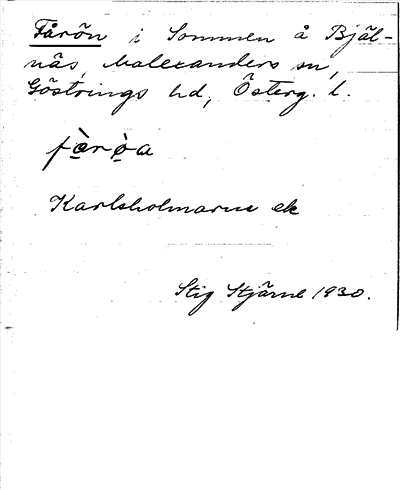 Fårön i Sommen å Bjäl-
näs, Malexanders sn,
Göstrings hd, Österg. l.
fàrǫ̀a
Karlsholmarne ek
Stig Stjärne 1930.